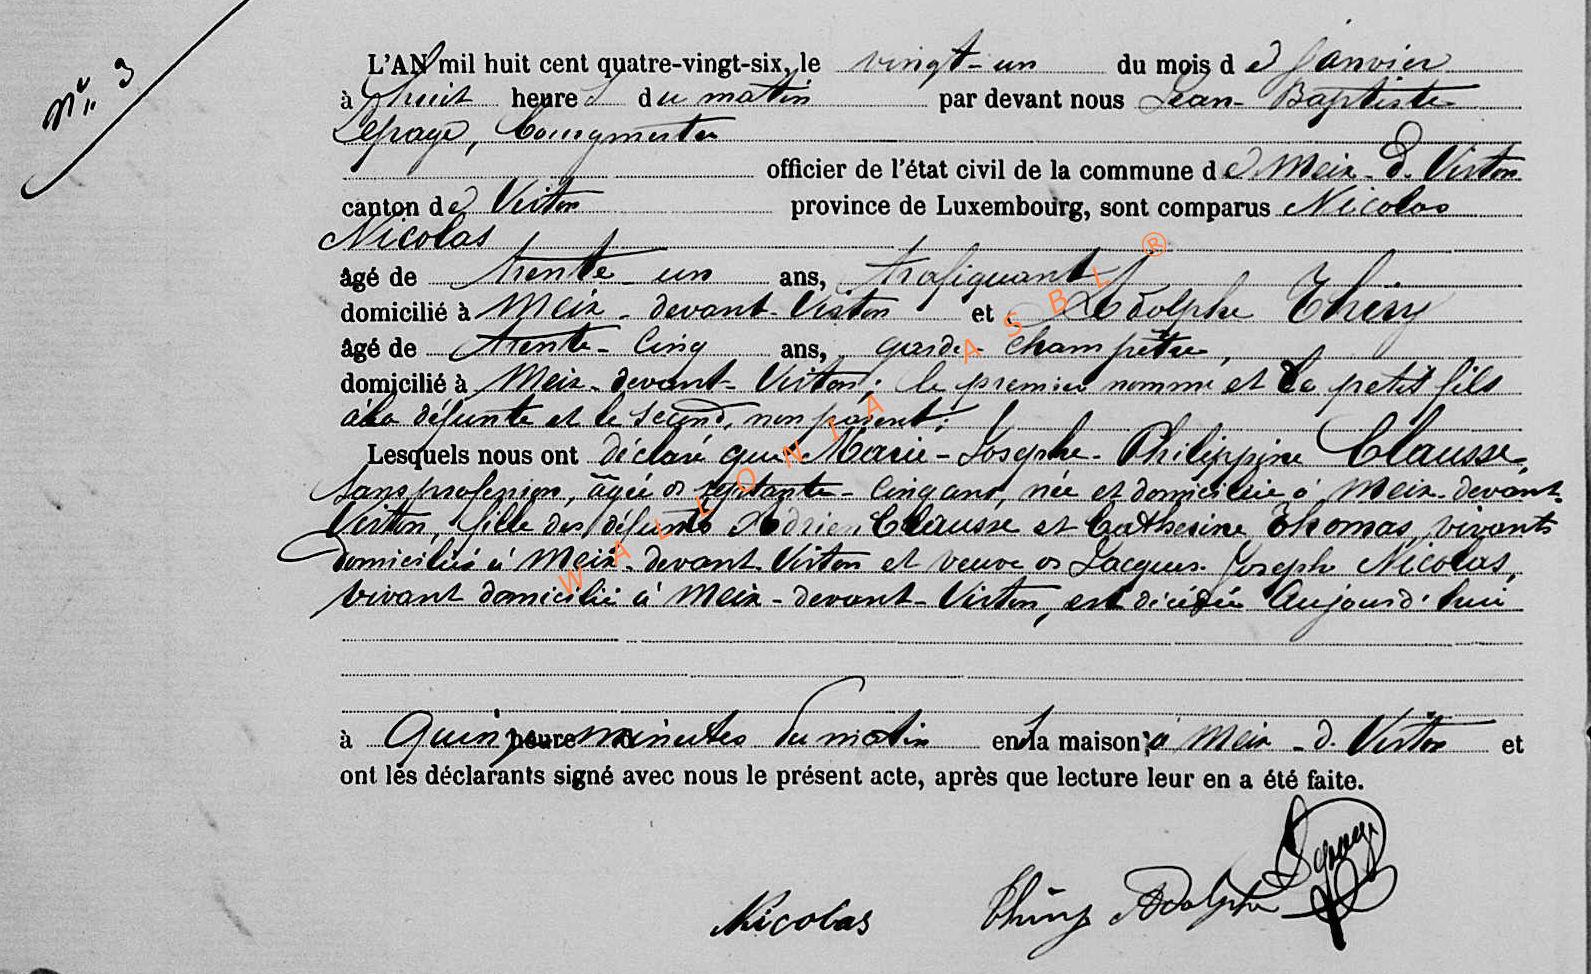 N° 3
L'AN mil huit cent quatre-vingt-six, le vingt-un du mois de Janvier
à huit heures du matin par devant nous Jean-Baptiste
Lepage, bourgmestre
officier de l'état civil de la commune de Meix-d. Virton
canton de Virton province de Luxembourg, sont comparus Nicolas
Nicolas
âgé de trente-un ans, trafiquant
domicilié à Meix-devant-Virton et Adolphe Thiry
âgé de trente-cinq ans, garde-champêtre,
domicilié à Meix-devant-Virton; le premier nommé est le petit fils
à la défunte et le second, non parent;
Lesquels nous ont déclaré que Marie-Josephe-Philippine Clausse,
sans profession, âgée de septante-cinq ans, née et domiciliée à Meix-devant-
Virton, fille des défunts Adrien Clausse et Catherine Thomas, vivants
domiciliés à Meix-devant-Virton et veuve de Jacques Joseph Nicolas,
vivant domicilié à Meix-devant-Virton, est décédée aujourd'hui
à Quinze heure minutes du matin en la maison à Meix-d. Virton et
ont les déclarants signé avec nous le présent acte, après que lecture leur en a été faite.
Lepage
Nicolas Thiry Adolphe
WALLONIA ASBL ®